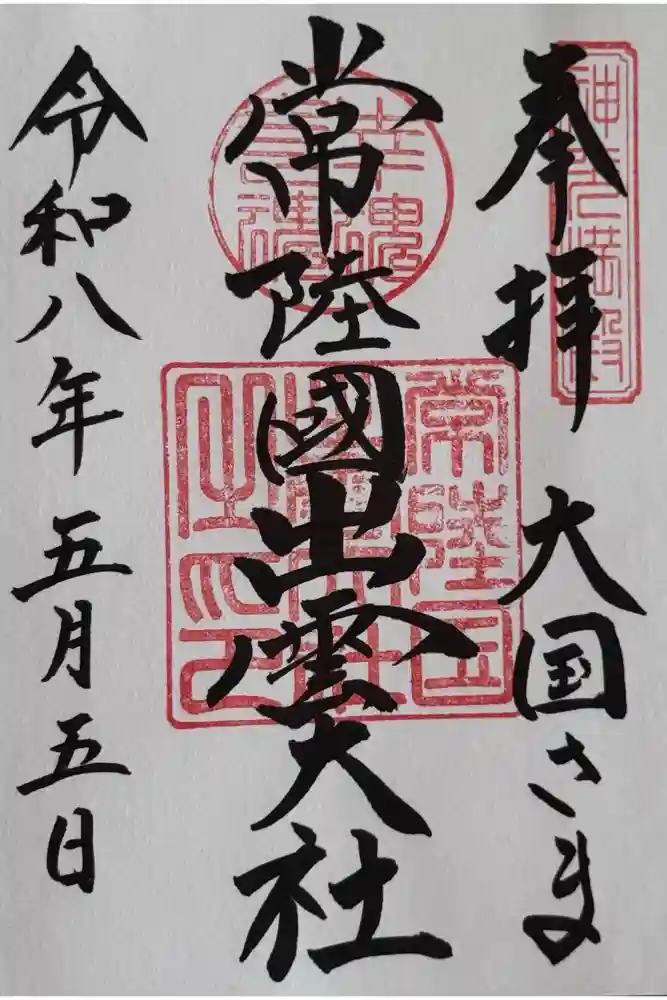 奉拝 大国さま
常陸國出雲大社
令和八年五月五日
幸魂
奇魂
常陸国
出雲大社
之印